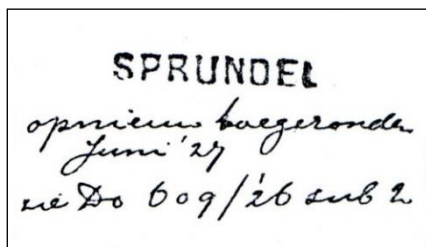 SPRUNDEL
opnieuw toegezonden
Juni '27
zie Do 609/'26 sub 2